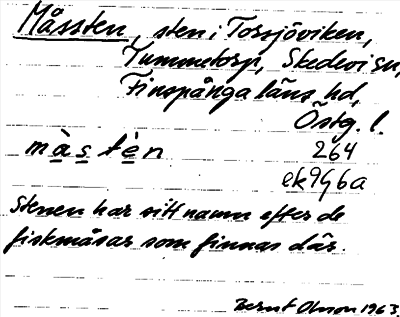 Måssten, sten i Torsjöviken,
Tummetorp, Skedevi sn,
Finspånga läns hd,
Östg. l.
måsten 264
ek 9g6a
Stenen har sitt namn efter de
fiskmåsar som finnas där.
Bernt Olsson 1963.